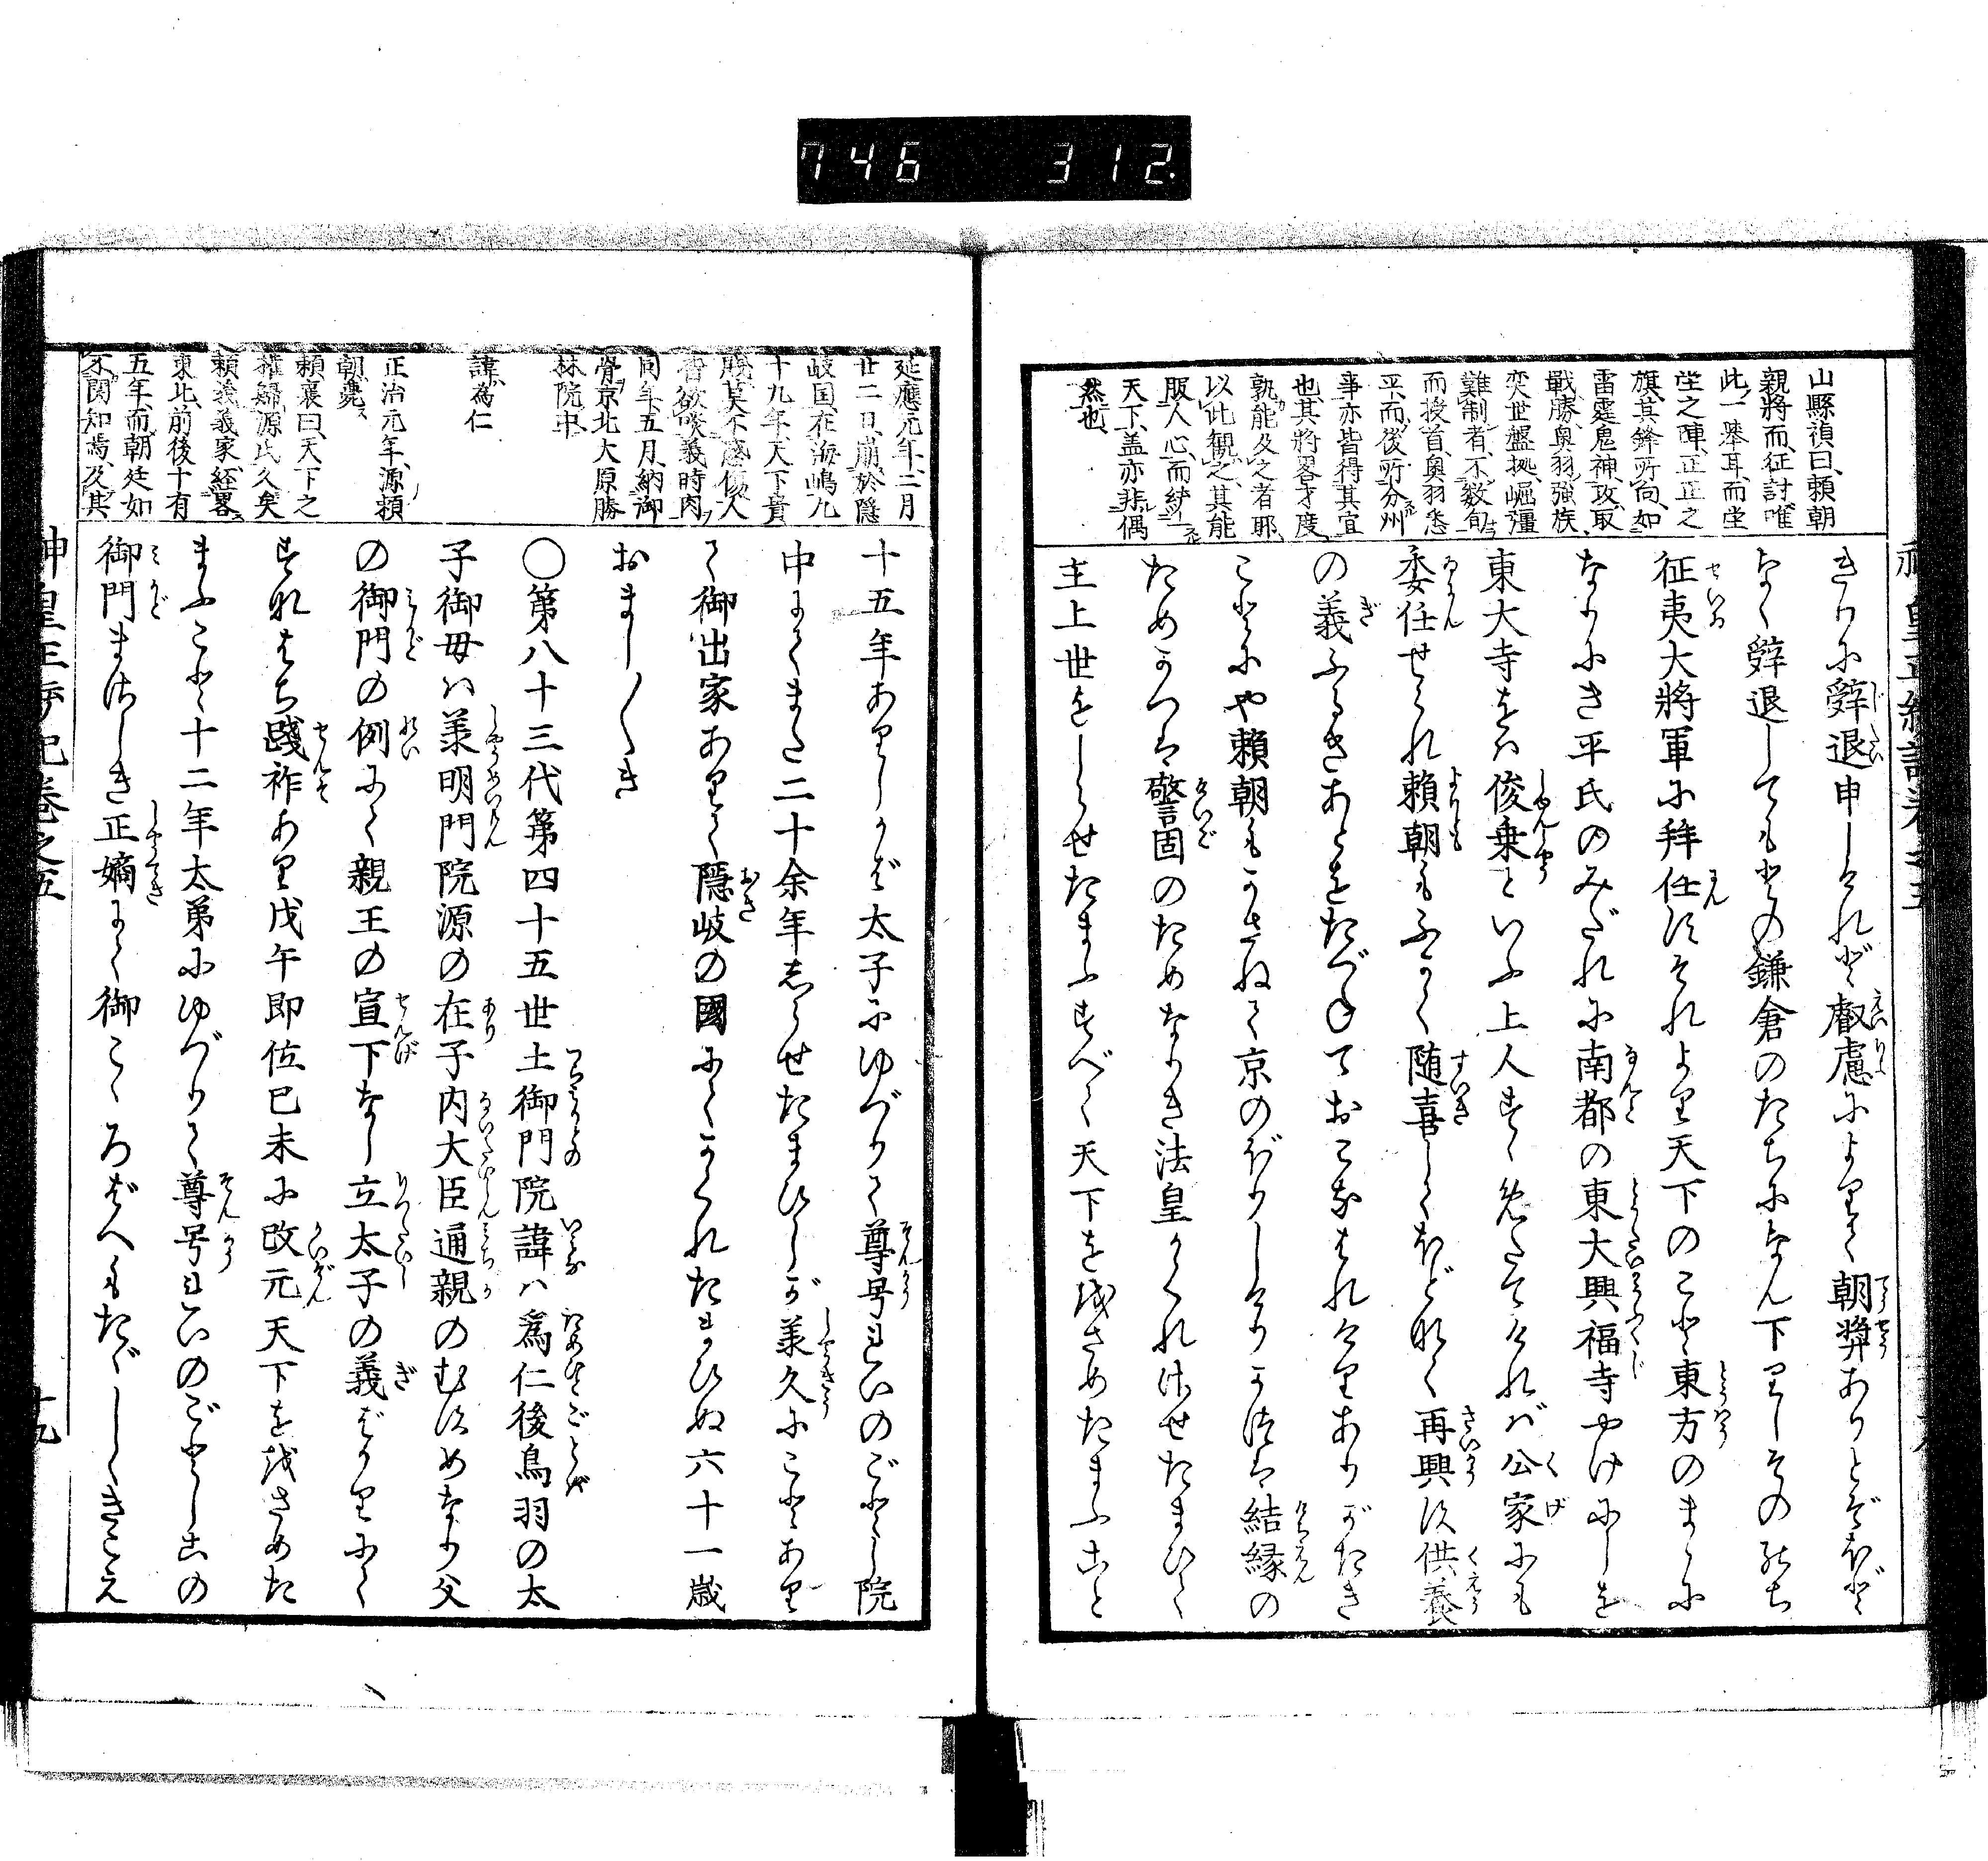 746 312
山縣禎曰、頼朝
親將而、征討、唯
此一擧耳、而堂
堂之陣、正正之
旗、其鋒所向、如
雷霆鬼神、攻取
戰勝、奥羽強族、
奕世盤拠、崛彊
難制者、不數旬
而授首、奥羽悉
平、而後所分州
事亦皆得其宜
也、其將畧才度
孰能及之者耶、
以此観之、其能
服人心、而統一
天下、盖亦非偶
然也、
きりに辞退申しけれど叡慮によりて朝奨ありとぞほど
なく辞退してもとの鎌倉のたちになん下りしそののち
征夷大將軍に拜任すそれより天下のこと東方のまゝに
なりにき平氏のみだれに南都の東大興福寺やけにしを
東大寺をハ俊乗といふ上人すゝめたてければ公家にも
委任せられ頼朝もふかく随喜してほどなく再興す供養
の義ふるきあとをたづねておこなはれけりありがたき
ことにや頼朝もかさねて京のぼりしけりかつは結縁の
ためかつは警固のためなりき法皇かくれさせたまひて
主上世をしらせたまふすべて天下を治さめたまふこと
延應元年二月
廿二日、崩於隠
岐国、在海嶋九
十九年、天下貴
賤莫不感傷、人
皆欲啖義時肉
同年五月、納御
骨京北大原勝
林院中、
諱爲仁
正治元年、源頼
朝薨ス
頼襄曰、天下之
權歸源氏久矣
頼義義家、経畧
東北、前後十有
五年、而朝廷如
不関知焉、及其
十五年ありしかば太子にゆづりて尊号れいのごとし院
中にてまた二十余年しらせたまひしが羕久にことあり
て御出家ありて隠岐の國にてかくれたまひぬ六十一歳
おまし〱き
〇第八十三代第四十五世土御門院諱ハ爲仁後鳥羽の太
子御母ハ羕明門院源の在子内大臣通親のむすめなり父
の御門の例にて親王の宣下なし立太子の義ばかりにて
すなはち踐祚あり戊午即位已未に改元天下を治さめた
まふこと十二年太弟にゆづりて尊号れいのごとしこの
御門まさしき正嫡にて御こゝろばへもたゞしくきこえ
神皇正統記巻之五
十九